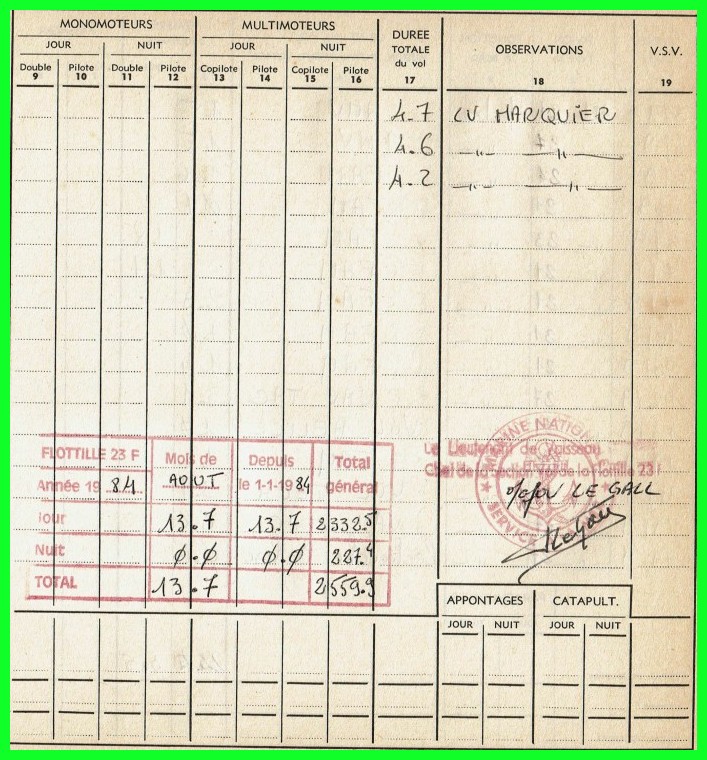 MONOMOTEURS MULTIMOTEURS DUREE TOTALE du vol 17 OBSERVATIONS 18 V.S.V. 19
JOUR NUIT JOUR NUIT
Double 9 Pilote 10 Double 11 Pilote 12 Copilote 13 Pilote 14 Copilote 15 Pilote 16
4.7 LV MARQUIER
4.6 —"— —"—
4.2 —"— —"—
FLOTTILLE 23 F Mois de Depuis Total
Année 19 84 AOUT le 1-1-1984 général
Jour 13.7 13.7 2332.5
Nuit 0.0 0.0 227.4
TOTAL 13.7 2559.9
Le Lieutenant de Vaisseau
Chef de la Section Vol de la Flottille 23 F
Major LE GALL
APPONTAGES CATAPULT.
JOUR NUIT JOUR NUIT